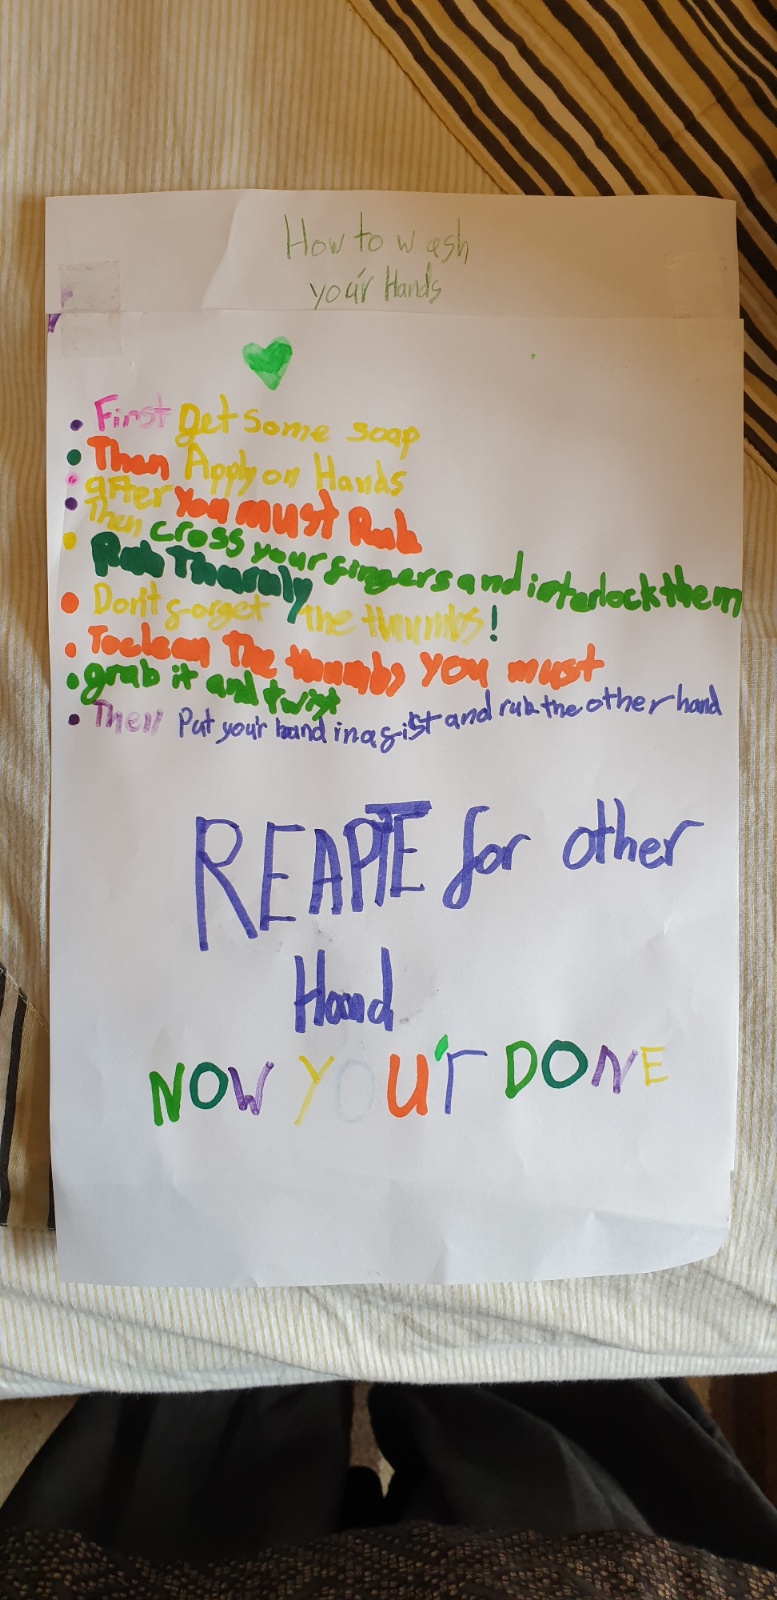 How to wash
you'r Hands
First get some soap
Then Apply on Hands
after You must Rub
Then cross your fingers and interlock them
Rub Thurnly
Don't forget the thumbs!
To clean The thumbs you must
grab it and twist
Then Put you'r hand in a fist and rub the other hand
REAPTE for other
Hand
NOW YOU'r DONE